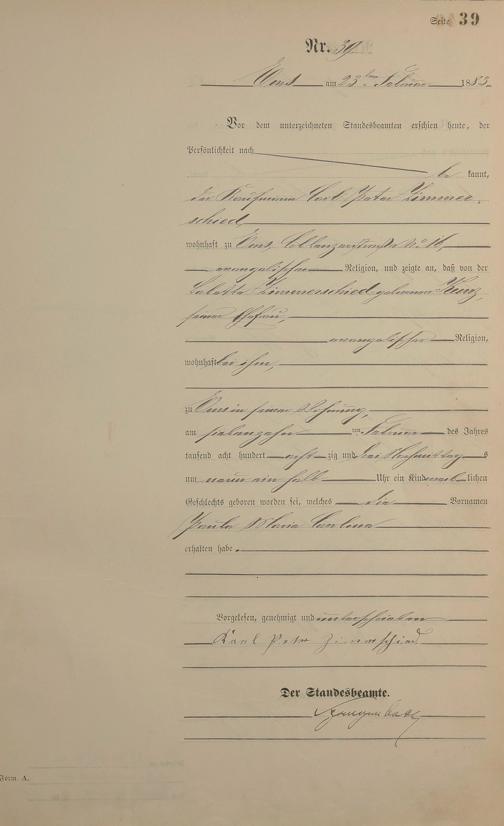 Seite 39
Nr. 39
Ems am 23ten Februar 1883
Vor dem unterzeichneten Standesbeamten erschien heute, der
Persönlichkeit nach
be kannt,
der Kaufmann Carl Peter Zimmer-
schied,
wohnhaft zu Ems, No 16,
evangelischer Religion, und zeigte an, daß von der
Zimmerschied geborenen
seiner Ehefrau,
evangelischer Religion,
wohnhaft bei ihm,
zu Ems in seiner Wohnung,
am ten Februar des Jahres
tausend acht hundert acht zig und drei Nachmittags
um neun ein halb Uhr ein Kind weiblichen
Geschlechts geboren worden sei, welches die Vornamen
Paula Maria Carolina
erhalten habe.
Vorgelesen, genehmigt und unterschrieben
Karl Peter Zimmerschied
Der Standesbeamte.
Form. A.